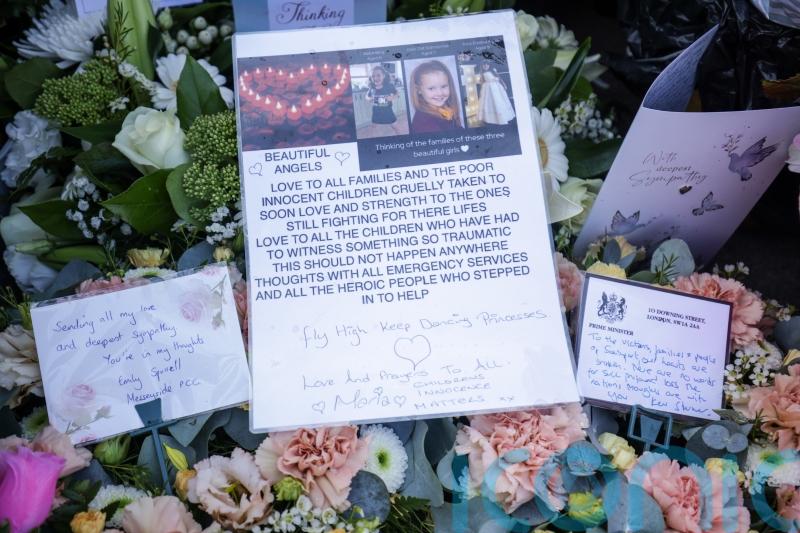 Thinking
Thinking of the families of these three
beautiful girls
BEAUTIFUL
ANGELS
LOVE TO ALL FAMILIES AND THE POOR
INNOCENT CHILDREN CRUELLY TAKEN TO
SOON LOVE AND STRENGTH TO THE ONES
STILL FIGHTING FOR THERE LIFES
LOVE TO ALL THE CHILDREN WHO HAVE HAD
TO WITNESS SOMETHING SO TRAUMATIC
THIS SHOULD NOT HAPPEN ANYWHERE
THOUGHTS WITH ALL EMERGENCY SERVICES
AND ALL THE HEROIC PEOPLE WHO STEPPED
IN TO HELP
Fly High Keep Dancing Princesses
Love And Prayers To All
Maria
CHILDRENS
INNOCENCE
MATTERS xx
Sending all my love
and deepest Sympathy
You're in my thoughts
Emily Spurrell
Merseyside PCC
With
deepest
Sympathy
10 DOWNING STREET,
LONDON, SW1A 2AA
PRIME MINISTER
To the victims, families & people
of Southport, our hearts are
broken. There are no words
for such profound loss. The
nations thoughts are with
you Keir Starmer
iconic